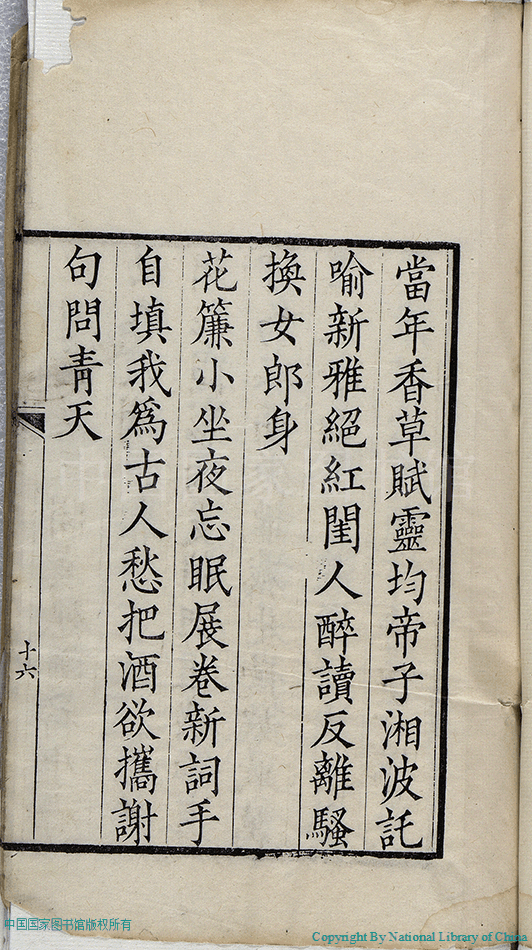 當年香草賦靈均帝子湘波託
喻新雅絕紅閨人醉讀反離騷
換女郎身
花簾小坐夜忘眠展卷新詞手
自填我為古人愁把酒欲攜謝
句問靑天
十六
中国国家图书馆版权所有
Copyright By National Library of China